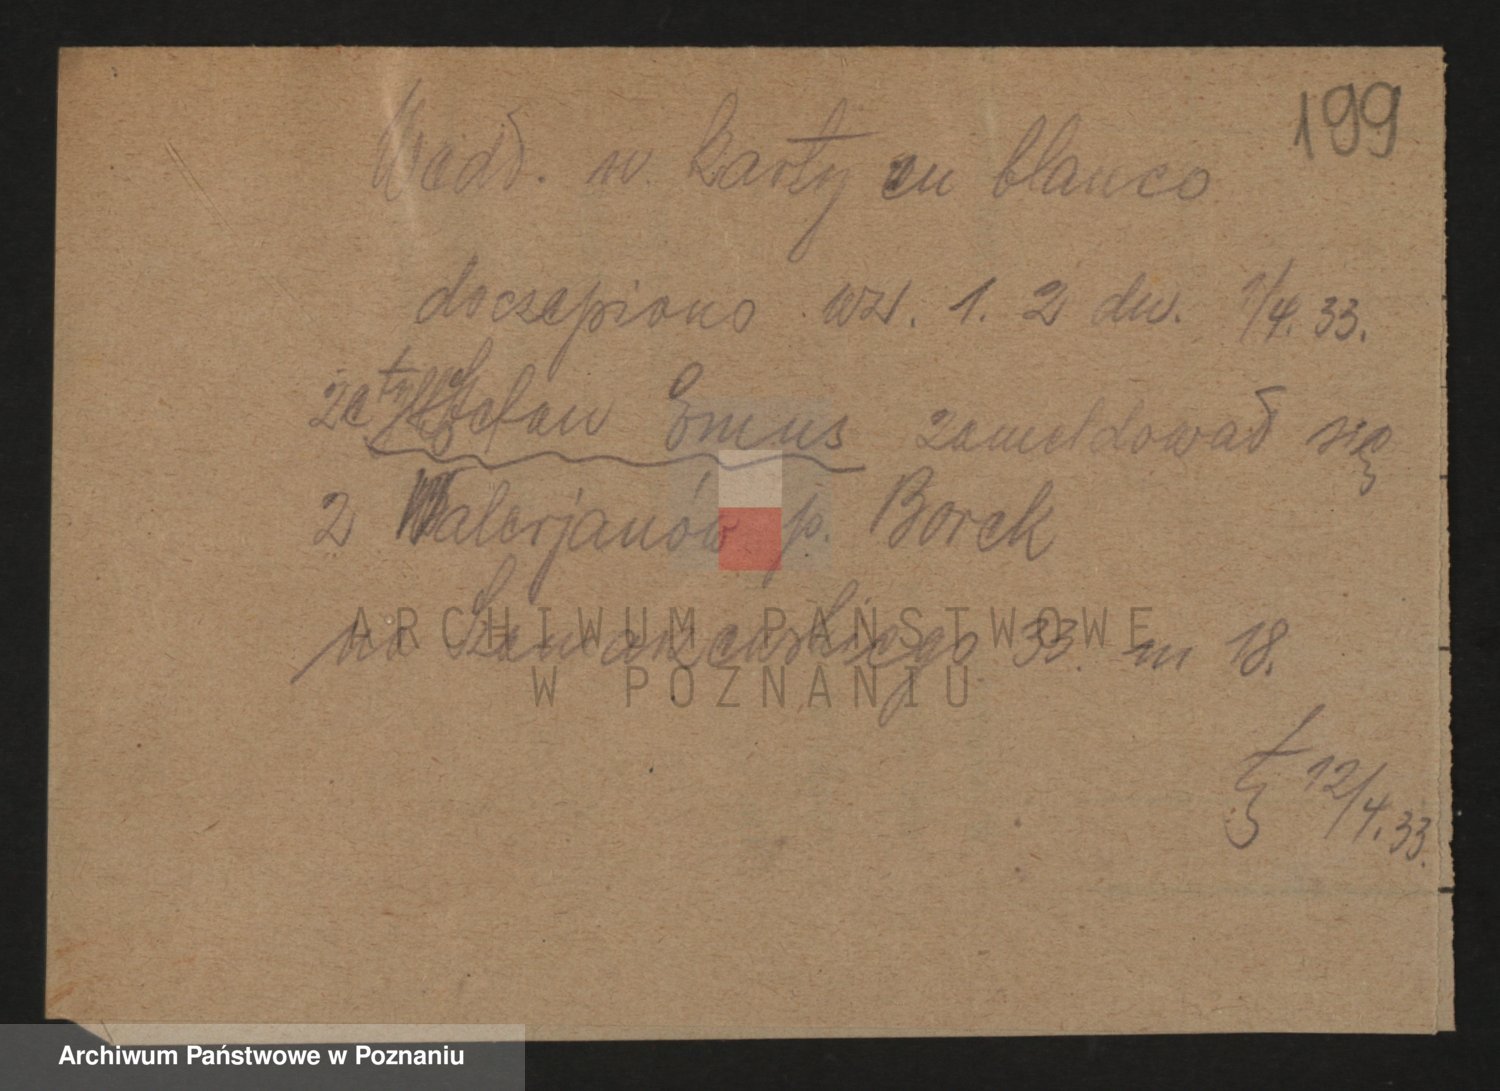 199
Wedł. w. karty en blanco
doczepiono wzr. 1. 2 dn. 1/4. 33.
że tż Stefan Emus zameldował się
z Walerjanów p. Borek
na Szamarzewskiego 33. m 18.
12/4. 33.
ARCHIWUM PAŃSTWOWE
W POZNANIU
Archiwum Państwowe w Poznaniu